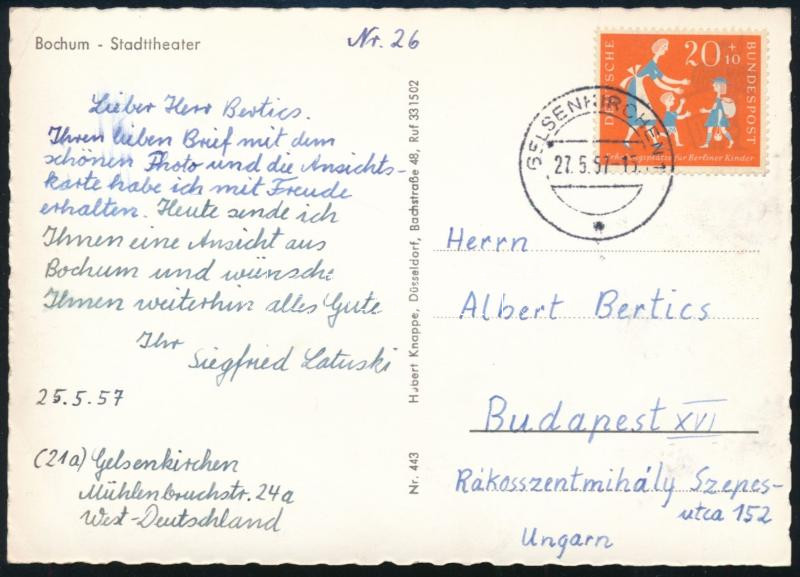 Bochum - Stadttheater
Nr. 26
Lieber Herr Bertics.
Ihren lieben Brief mit dem
schönen Photo und die Ansichts-
karte habe ich mit Freude
erhalten. Heute sende ich
Ihnen eine Ansicht aus
Bochum und wünsche
Ihnen weiterhin alles Gute
Ihr
Siegfried Latuski
25.5.57
(21a) Gelsenkirchen
Mühlenbruchstr. 24a
West-Deutschland
Nr. 443 Hubert Knappe, Düsseldorf, Bachstraße 48, Ruf 331502
DEUTSCHE
20+10
BUNDESPOST
für Berliner Kinder
GELSENKIRCHEN
27.5.57
Herrn
Albert Bertics
Budapest XVI
Rákosszentmihály Szepes-
utca 152
Ungarn